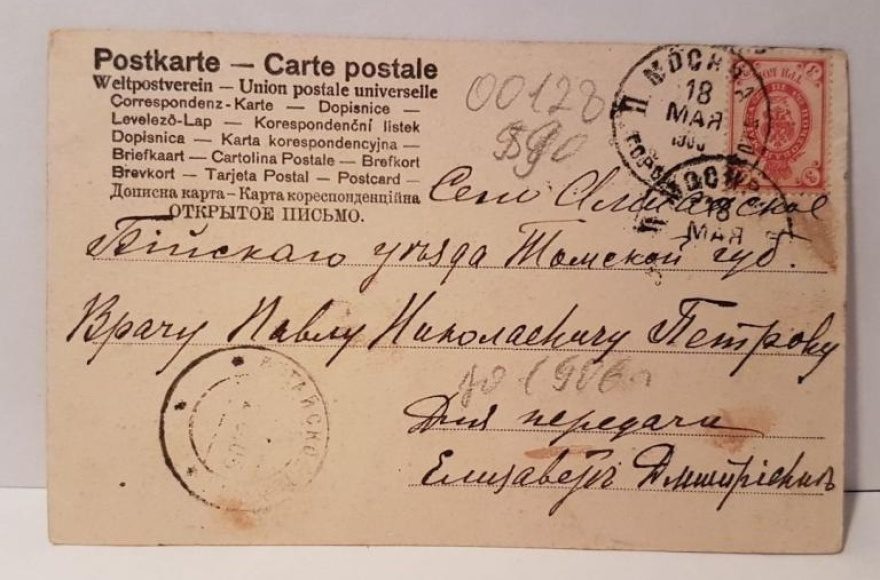 Postkarte — Carte postale
Weltpostverein — Union postale universelle
Correspondenz-Karte — Dopisnice —
Levelező-Lap — Korespondenční listek
Dopisnica — Karta korespondencyjna —
Briefkaart — Cartolina Postale — Brefkort
Brevkort — Tarjeta Postal — Postcard —
Дописна карта — Карта кореспонденційна
ОТКРЫТОЕ ПИСЬМО.
00128
590
МОСКВА
18
МАЯ
МОСКВА
18
МАЯ
3
3
Село Алтайское
Бійскаго уѣзда Томской губ.
Врачу Павлу Николаевичу Петрову
до 1906г
Для передачи
Елизаветѣ Дмитріевнѣ